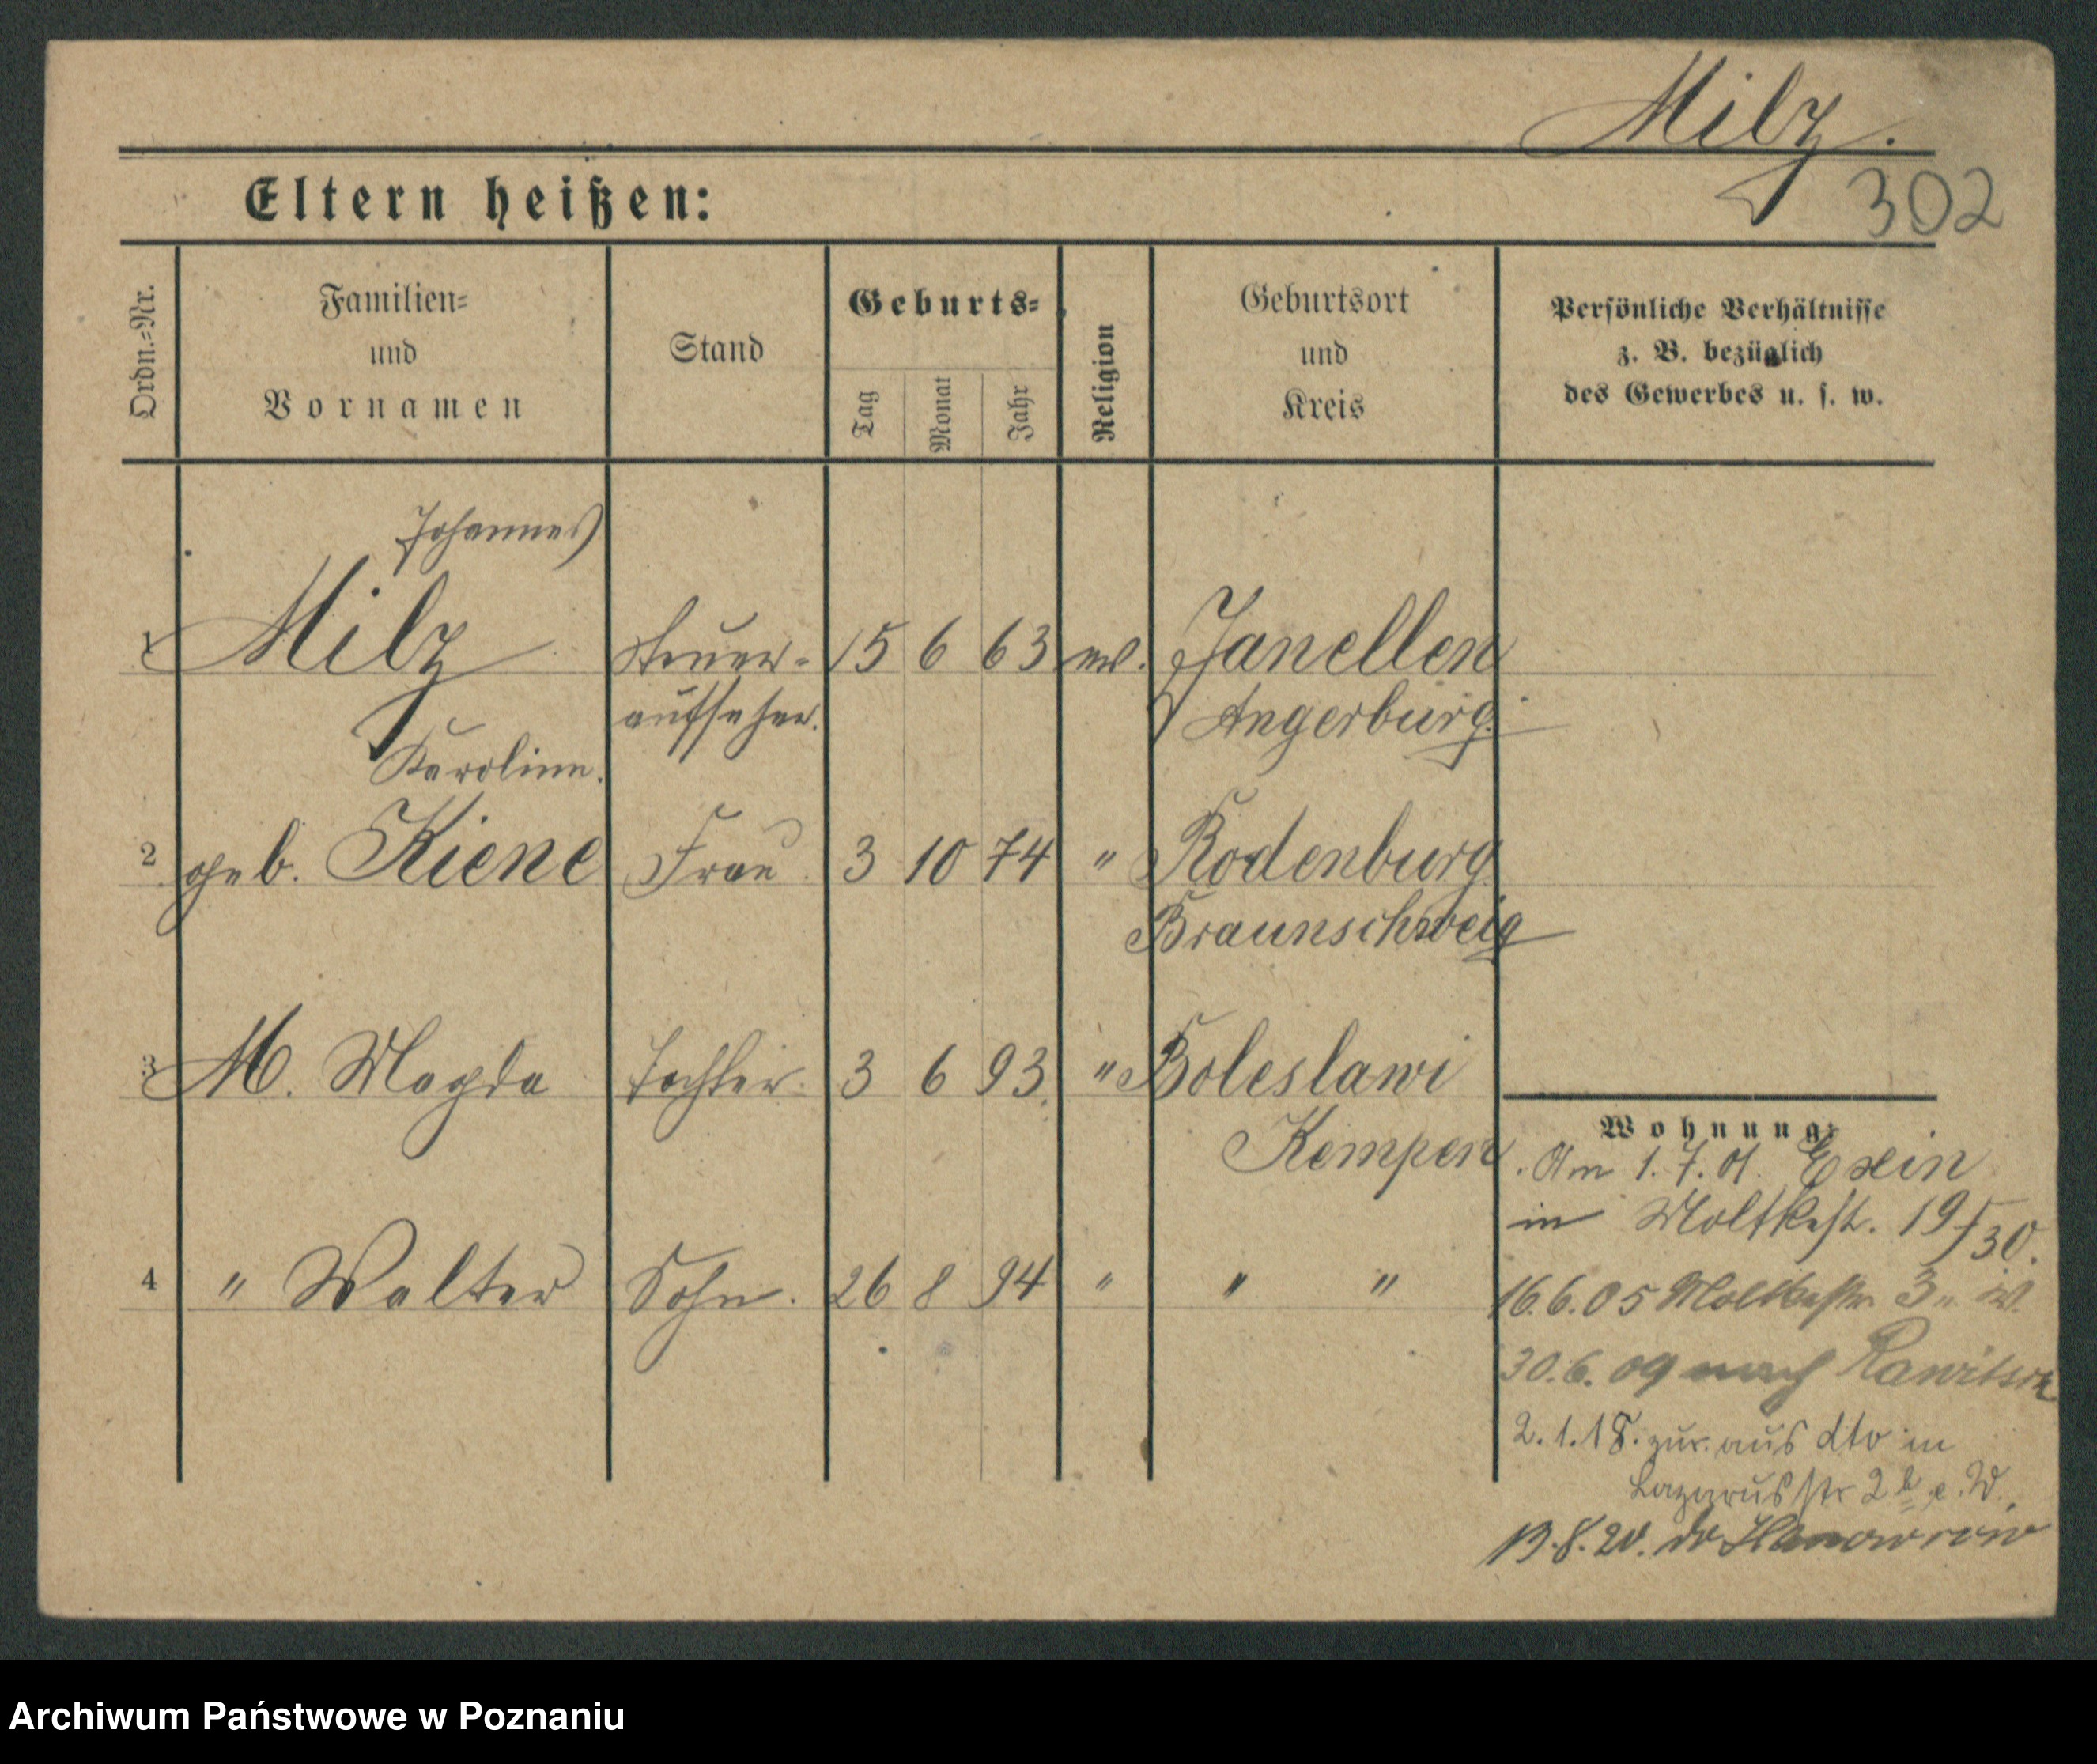 Milz.
302
Eltern heißen:
Ordn.-Nr.
Familien-
und
Vornamen
Stand
Geburts-
Tag
Monat
Jahr
Religion
Geburtsort
und
Kreis
Persönliche Verhältnisse
z. B. bezüglich
des Gewerbes u. s. w.
Johannes
1 Milz Steuer- 15 6 63 ev. Janellen
aufseher. Angerburg.
Karoline.
2 geb. Kiene Frau 3 10 74 " Rodenburg
Braunschweig
3 M. Magda Tochter. 3 6 93. " Boleslawi
Kempen
Wohnung:
Am 1.7.01. Exin
in Moltkest. 19/30.
4 " Walter Sohn. 26 8 94 " " "
16.6.05 Moltkestr. 3
30.6.09 nach Rawitsch
2.1.18. zur. aus dto in
Lazarusstr 2b e. W.
8.20.
Archiwum Państwowe w Poznaniu